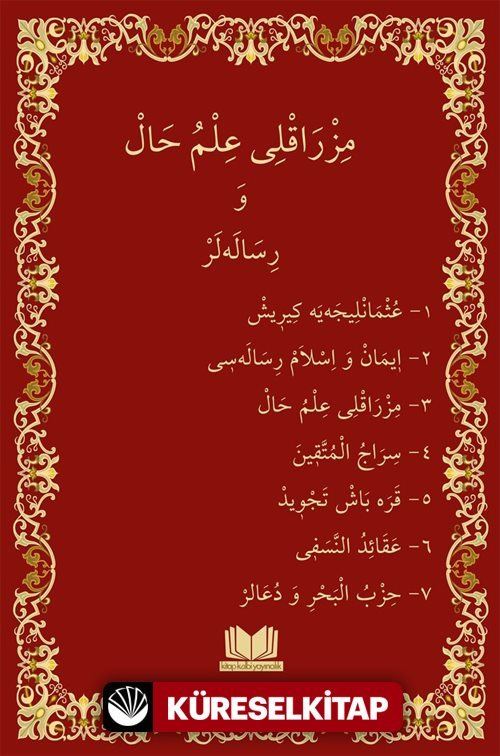 مِزْرَاقْلِى عِلْمُ حَالْ
وَ
رِسَالَه‌لَرْ
١- عُثْمَانْلِيجَه‌يَه كِيرِيشْ
٢- اِيمَانْ وَ اِسْلَامْ رِسَالَه‌سِى
٣- مِزْرَاقْلِى عِلْمُ حَالْ
٤- سِرَاجُ الْمُتَّقِينَ
٥- قَرَه بَاشْ تَجْوِيدْ
٦- عَقَائِدُ النَّسَفِى
٧- حِزْبُ الْبَحْرِ وَ دُعَالَرْ
kitap kalbi yayıncılık
KÜRESELKİTAP